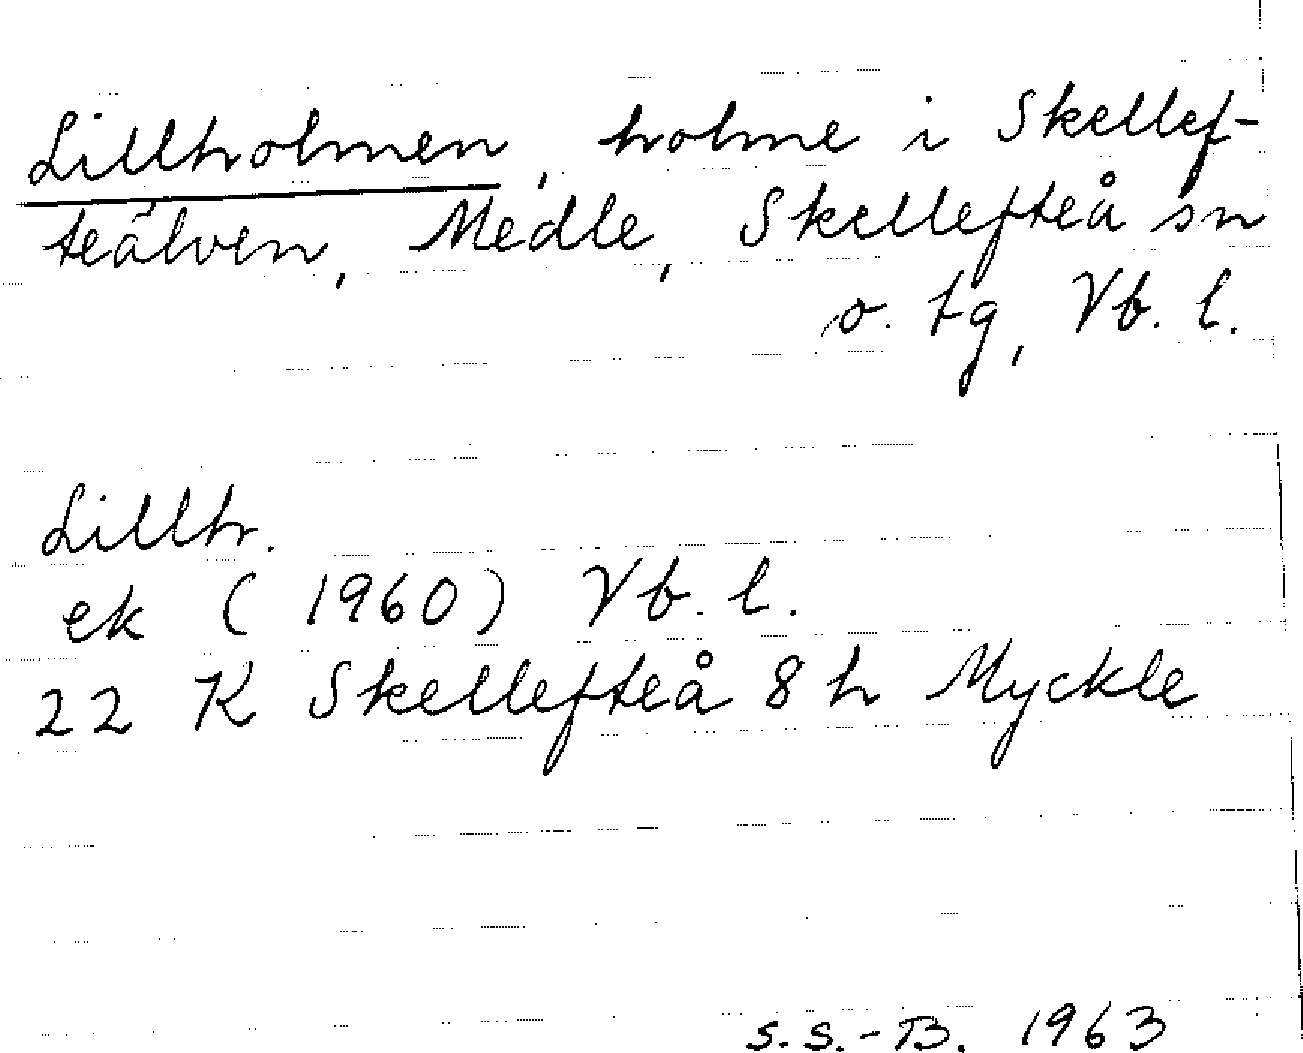 Lillholmen, holme i Skellef-
teälven, Medle, Skellefteå sn
o. tg, Vb. l.
Lillh.
ek (1960) Vb. l.
22 K Skellefteå 8 h Myckle
S.S.-B. 1963